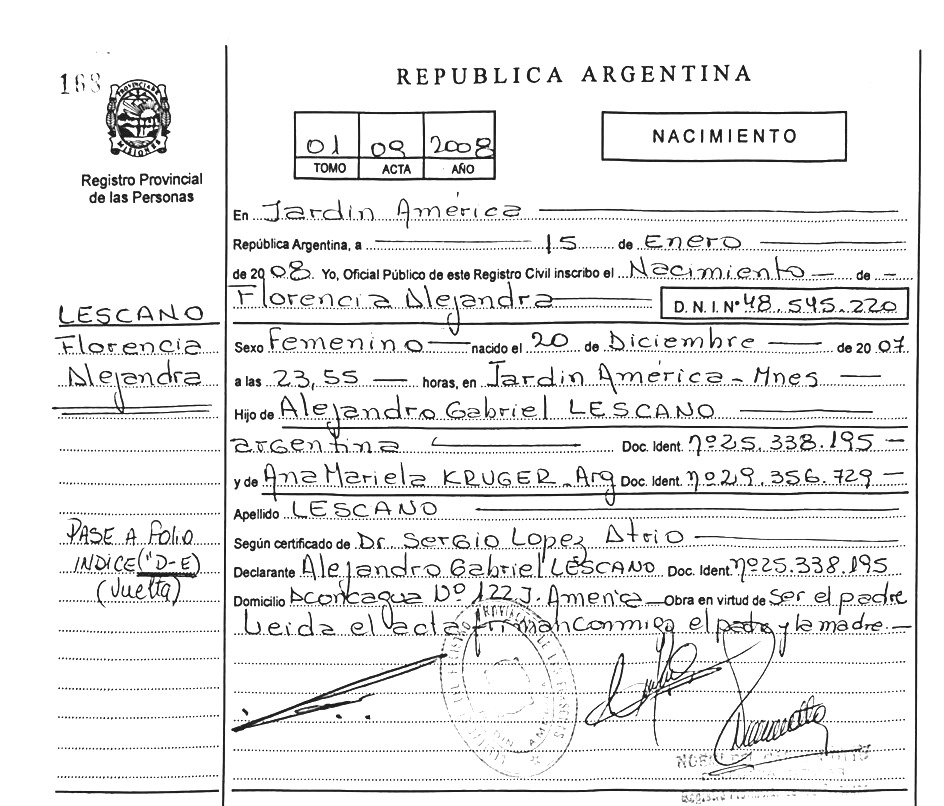 168
PROVINCIA DE
MISIONES
Registro Provincial
de las Personas
REPUBLICA ARGENTINA
01 09 2008
TOMO ACTA AÑO
NACIMIENTO
En Jardin América
República Argentina, a 15 de Enero
de 2008. Yo, Oficial Público de este Registro Civil inscribo el Nacimiento de
Florencia Alejandra D.N.I.Nº 48.545.220
LESCANO
Florencia
Alejandra
Sexo Femenino nacido el 20 de Diciembre de 2007
a las 23,55 horas, en Jardin América - Mnes
Hijo de Alejandro Gabriel LESCANO
argentina Doc. Ident. nº25.338.195
y de Ana Mariela KRUGER. Arg Doc. Ident. nº29.356.729
Apellido LESCANO
PASE A FOLIO
INDICE ("D-E)
(Vuelta)
Según certificado de Dr. Sergio Lopez Atrio
Declarante Alejandro Gabriel LESCANO Doc. Ident. nº25.338.195
Domicilio Aconcagua Nº 122 J. America Obra en virtud de Ser el padre
Leida el acta firman conmigo el padre y la madre.